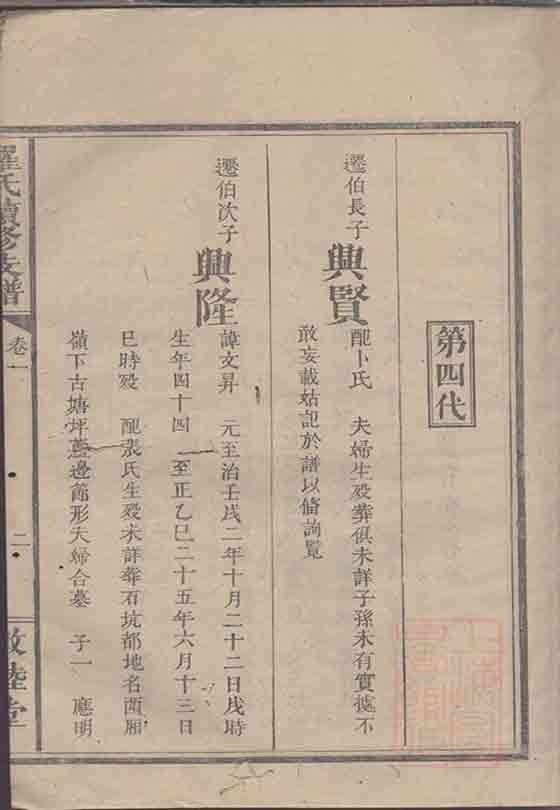 第四代
遷伯長子
興賢
配卜氏　夫婦生殁葬俱未詳子孫未有實㨿不
敢妄載姑記於譜以俻詢覽
遷伯次子
興隆
諱文昇　元至治壬戌二年十月二十二日戌時
生年四十四　至正乙巳二十五年六月十三日
巳時殁　配張氏生殁未詳葬石坑都地名西厢
嶺下古塘坪邊形夫婦合墓　子一　應明
羅氏續修支譜
卷一
二
敦睦堂